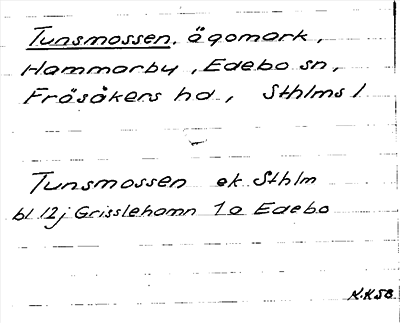 Tunsmossen, ägomark,
Hammarby, Edebo sn,
Frösåkers hd, Sthlms l
Tunsmossen ek. Sthlm
bl 12j Grisslehamn 1a Edebo
K.K 58